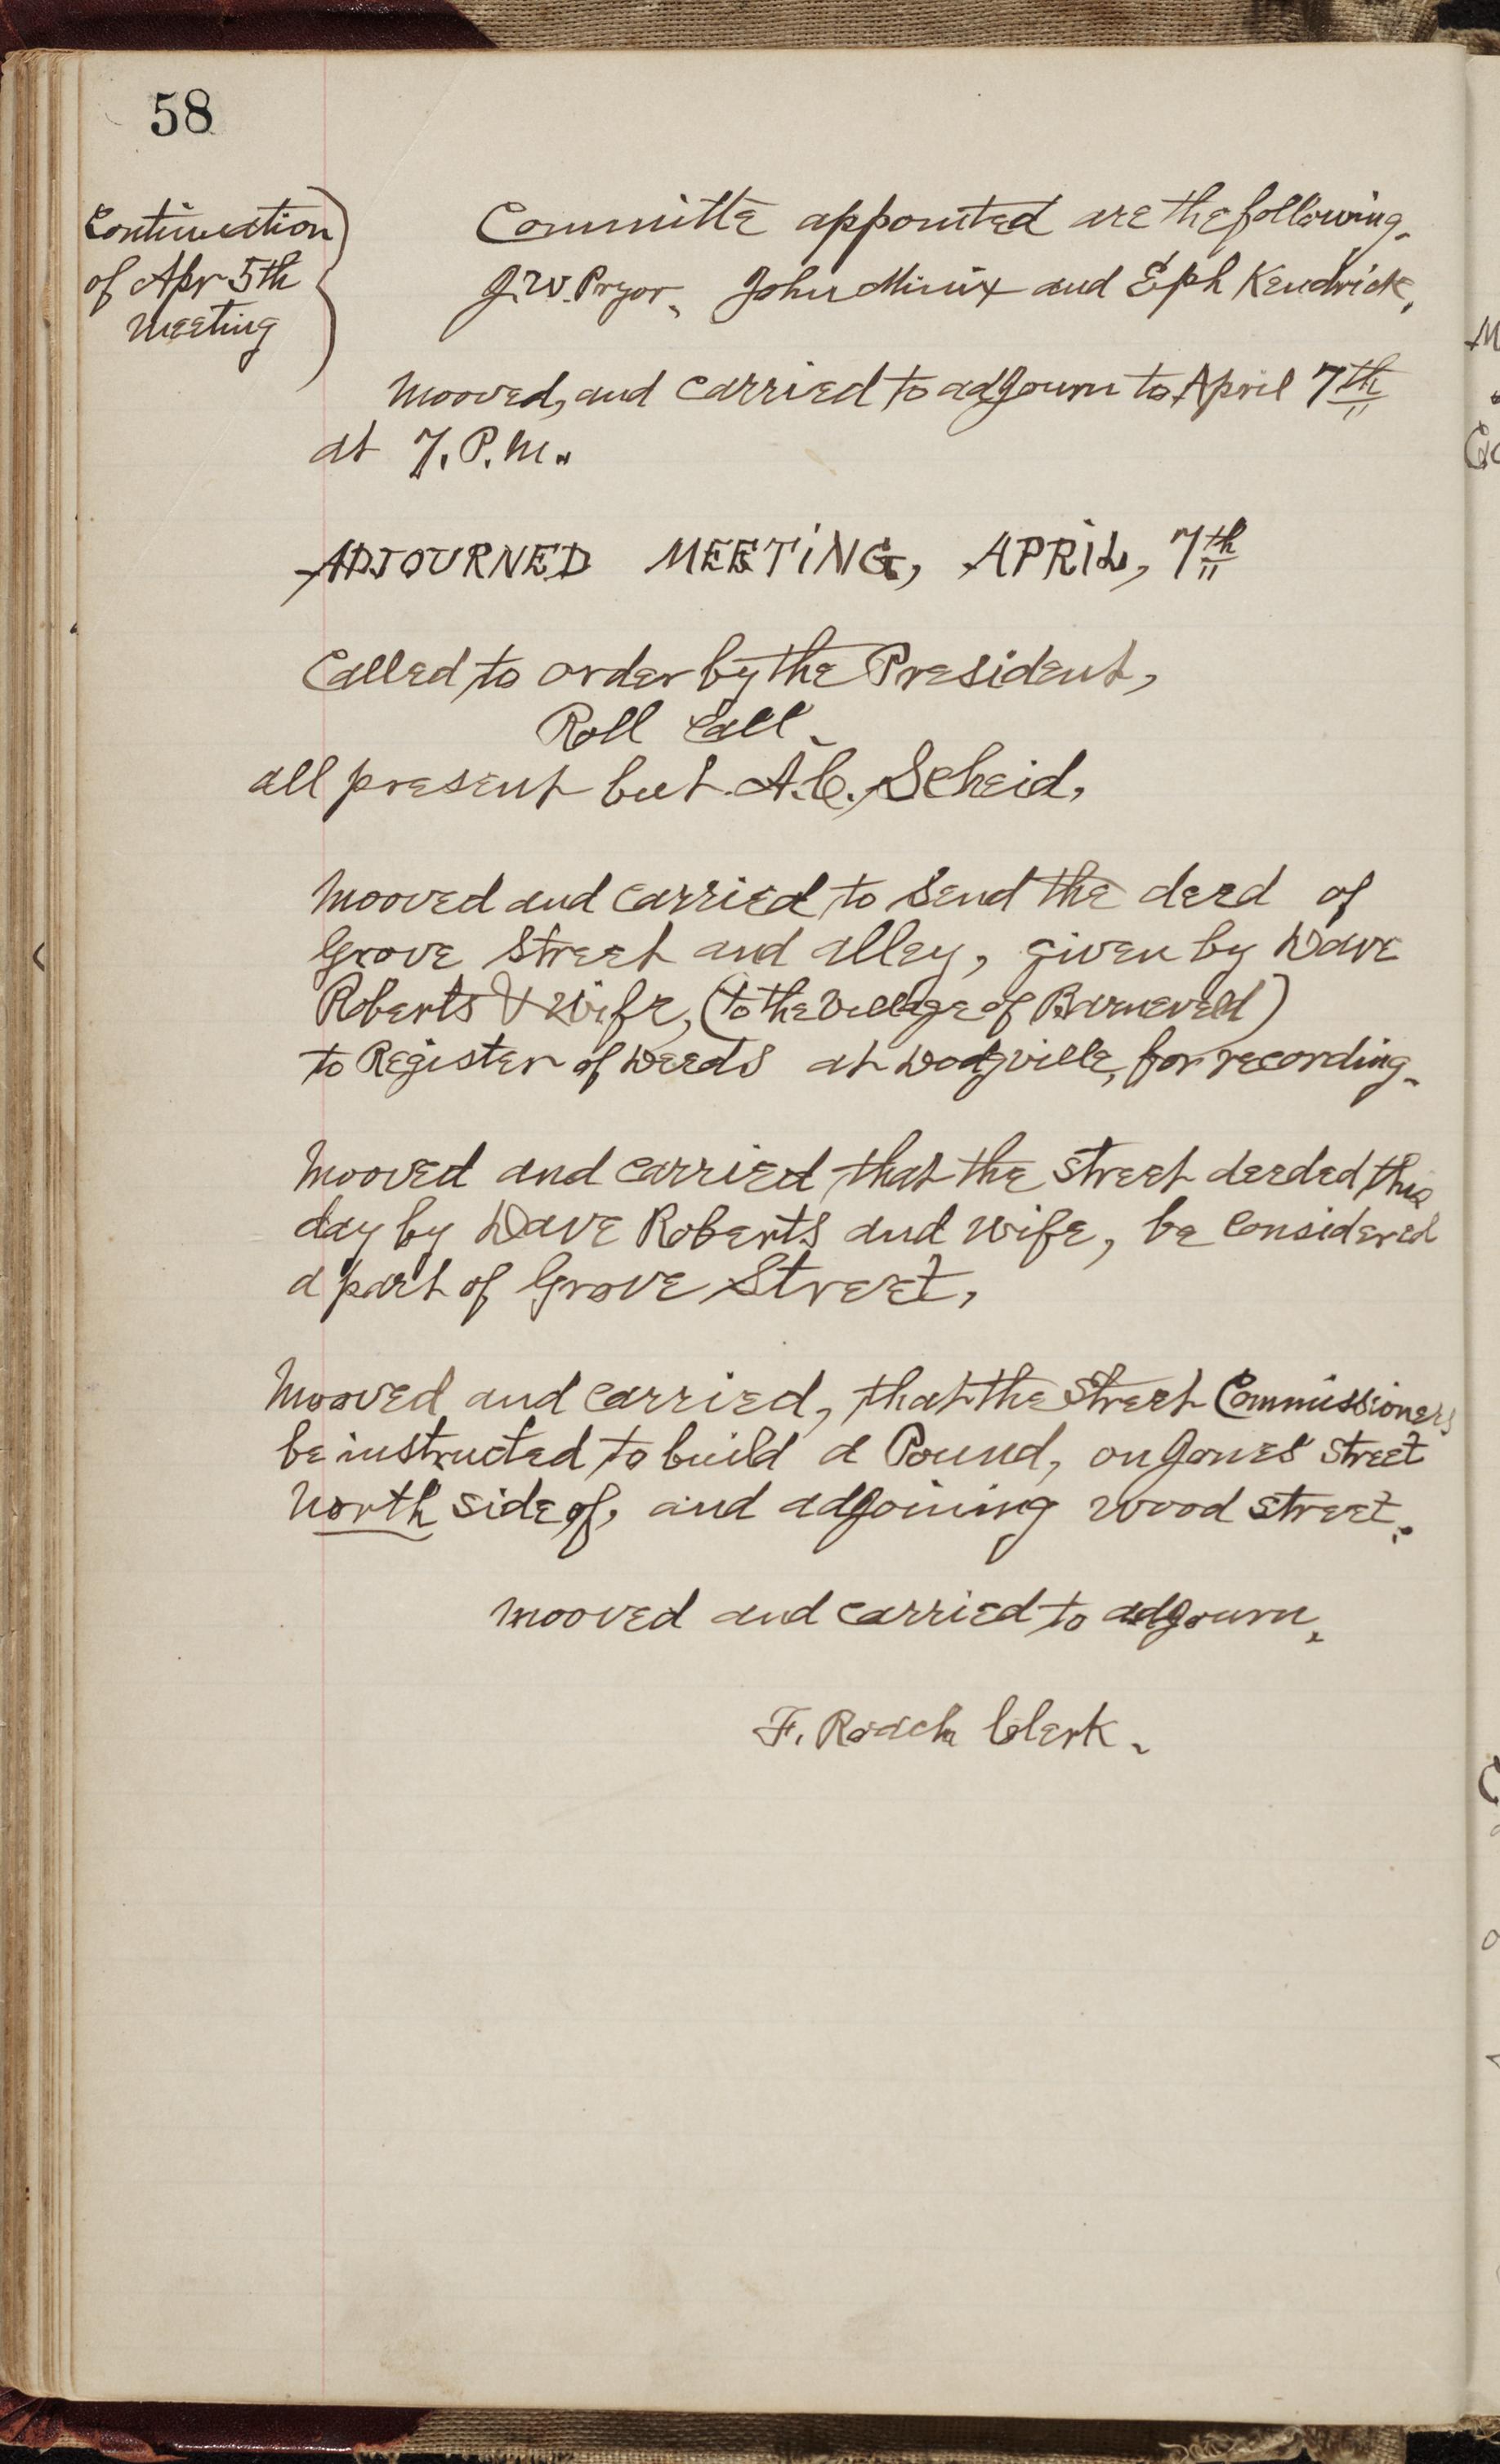 58
Continuation
of Apr 5th
Meeting
Committe appointed are the following.
J.W. Pryor, John Minix and Eph Kendrick,
Mooved, and carried to adjourn to April 7th
at 7. P.M.
ADJOURNED MEETING, APRIL, 7th
Called to order by the President,
Roll Call.
all present but A.C. Scheid,
Mooved and carried to send the deed of
Grove Street and alley, given by Dave
Roberts & Wife, (to the Village of Barneveld)
to Register of Deeds at Dodgville, for recording.
Mooved and carried that the street deeded this
day by Dave Roberts and Wife, be considered
a part of Grove Street,
Mooved and carried, that the Street Commissioners
be instructed to build a Pound, on Jones' Street
North side of, and adjoining Wood Street.
Mooved and carried to adjourn.
F. Roach Clerk.